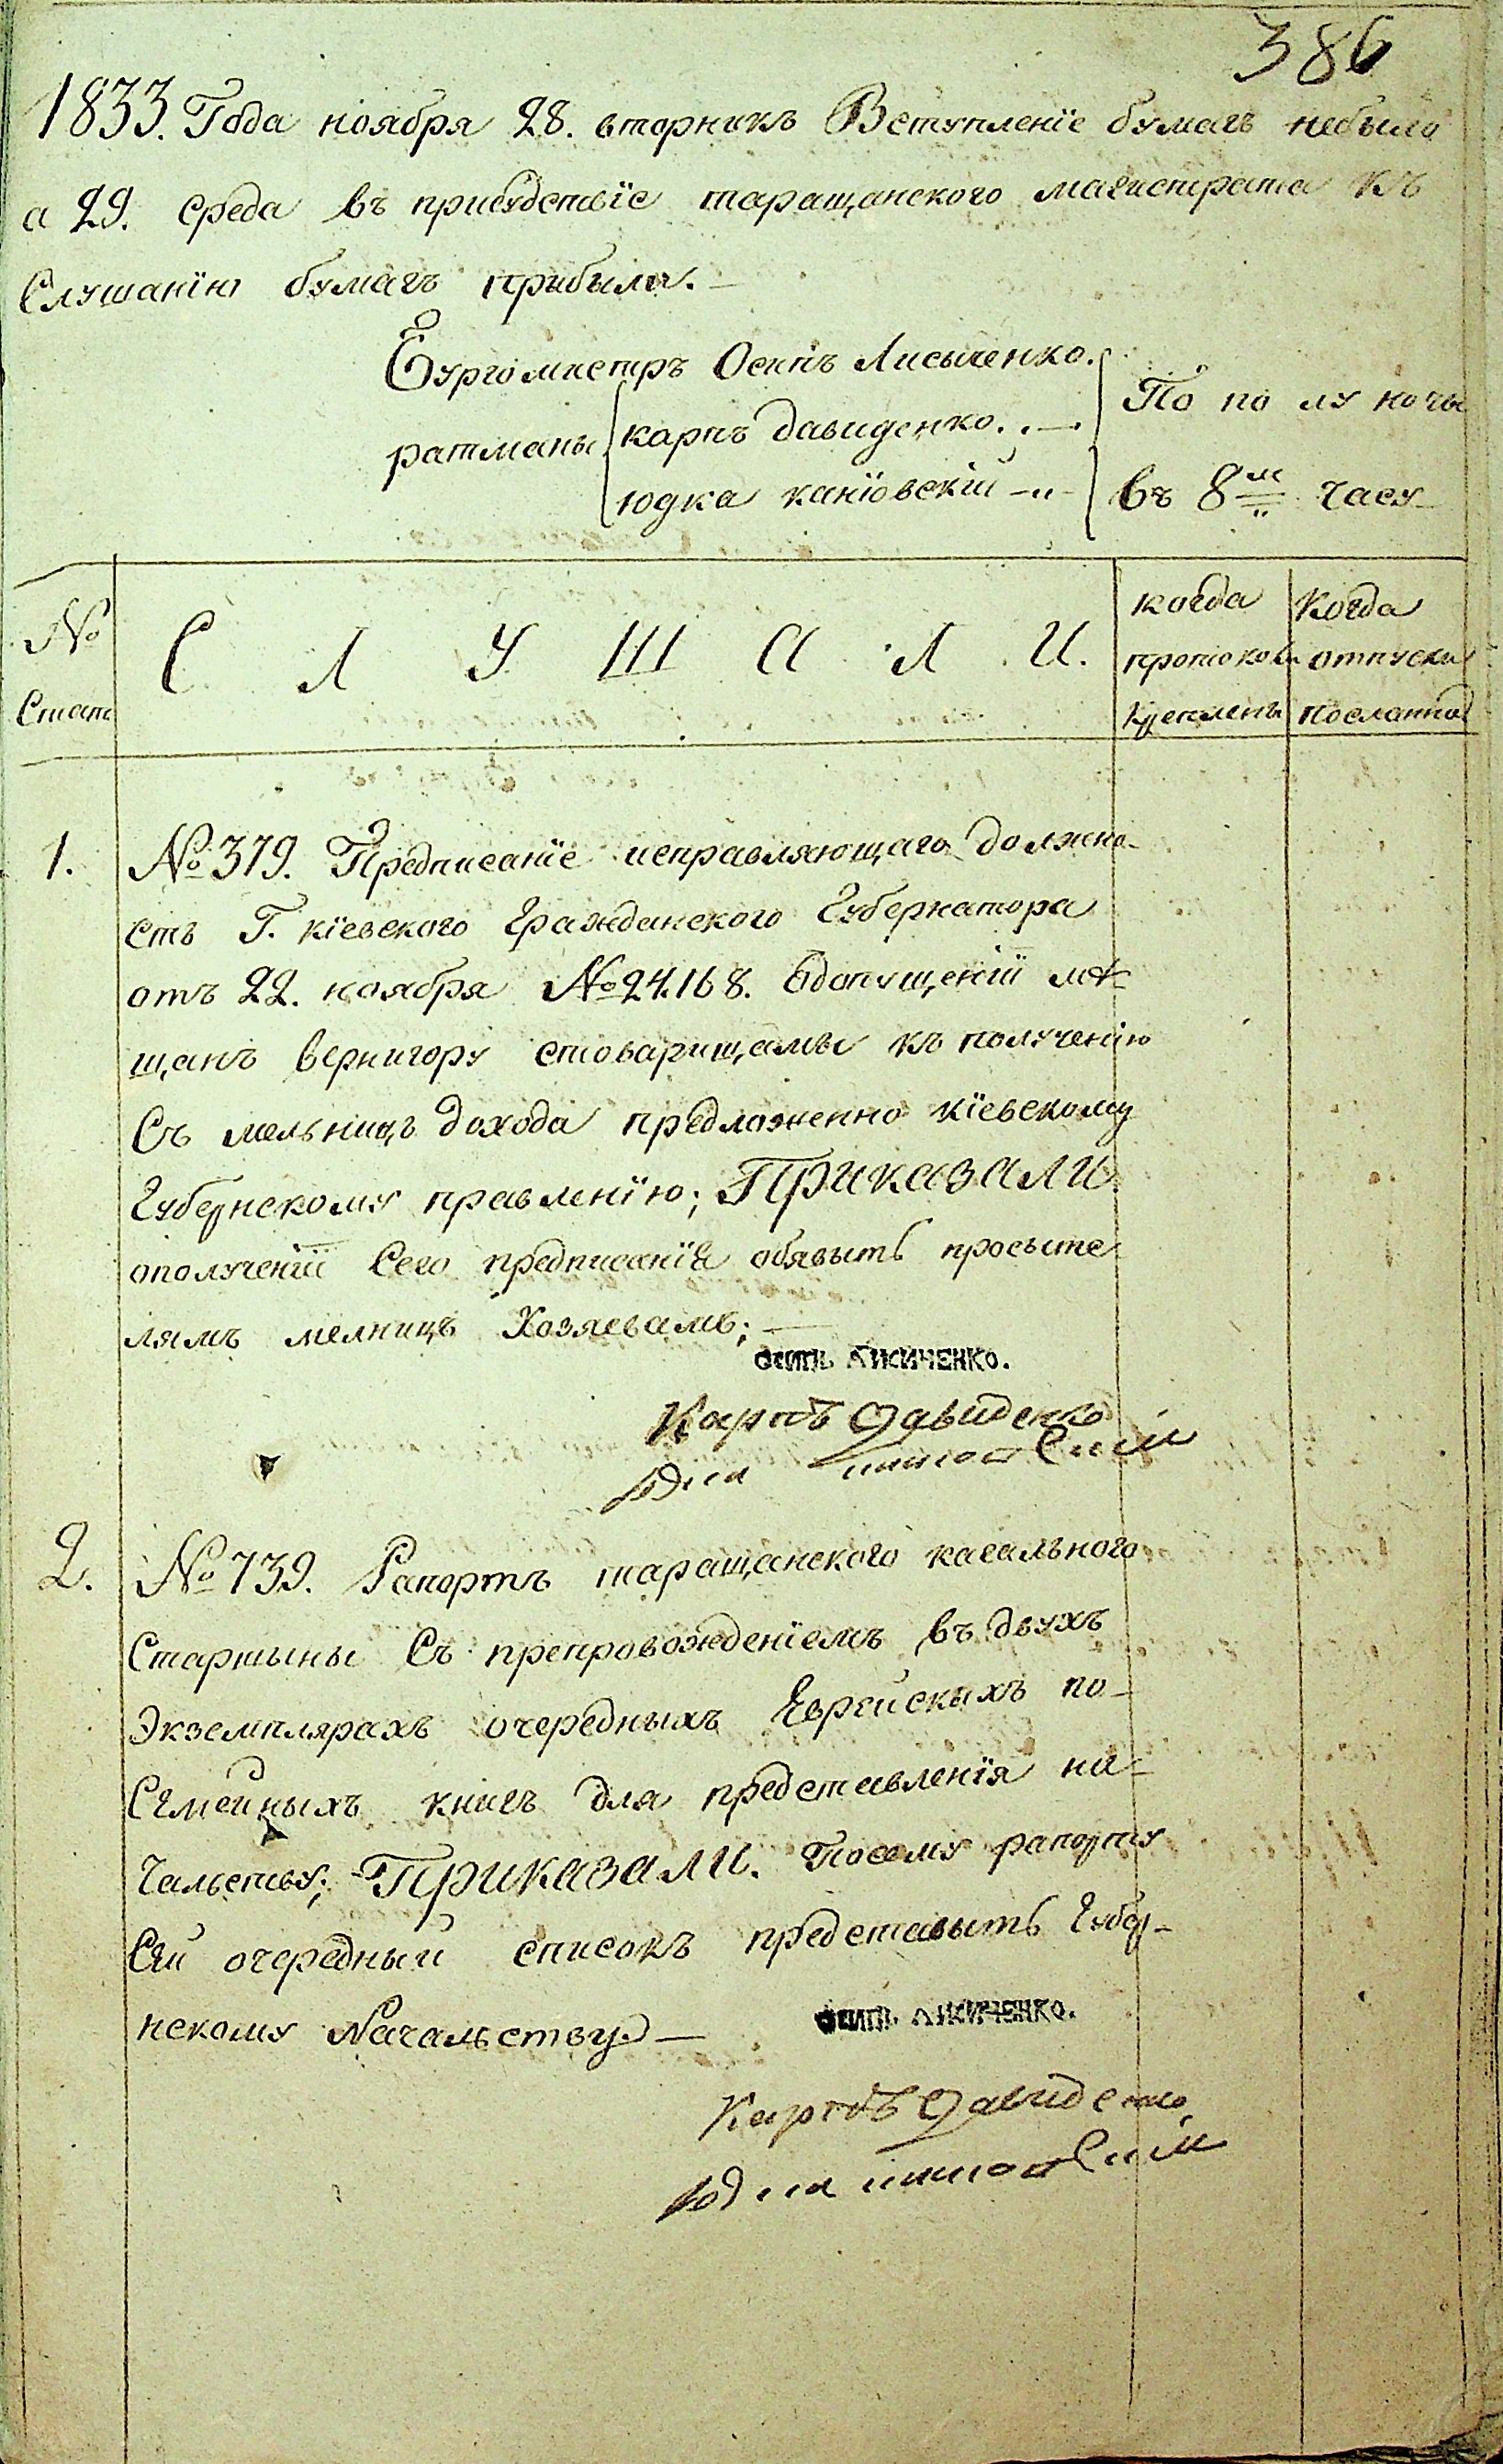 386
1833. Года ноября 28. вторникъ Вступленїе бумагъ небыло
а 29. среда въ присудствїе таращанского магистрата къ
Слушанїю бумагъ прибыли. —
Бургомистръ Осипъ Лисыченко.
ратманы карпъ давиденко. . —.
юдка канїовскїй — „ —
По по лу ночы
въ 8м часу
№ Стат
С Л У Ш А Л И.
когда протоколъ
Когда отпуски посланно
1. № 379. Предписанїе исправляющаго должно-
сть Г. кїевского Гражданского Губернатора
отъ 22. ноября № 24.168. Одопущенїи мѣ-
щанъ вернигору стоварищамы къ полученїю
Съ мельницъ дохода предложенно кїевскому
Губернскому правленїю; Приказали
ополученїи Сего предписанїя обявыть просыте
лямъ мелницъ Хозяевамъ; —
осипъ лисиченко.
Карпъ Давиденко
2. № 739. Рапортъ таращанского кагального
Старшины Съ препровожденїемъ въ двухъ
Экземплярахъ очередныхъ Еврейскыхъ по-
Семейныхъ книгъ для представленїя на-
чальству; Приказали. Посему рапорту
Сїй очередный списокъ представыть Губер-
нскому Начальству —
осипъ лисиченко.
Карпъ Давиденко